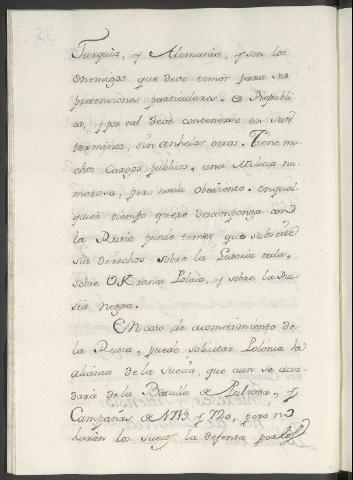 Turquia, y Alemania, y son los
enemigos que deve temer para sus
pretensiones particulares. Es Republi
ca, y por tal deve contenerse en sus
terminos, sin anhelar otros. Tiene mu
chos Cargos publicos, una Milicia nu
merosa, pero nada obediente. en qual
quier tiempo que se descomponga con
la Rusia puede temer que subscite
sus derechos sobre la toda.
sobre Okrania Polaca, y sobre la Ru
sia negra.
En caso de acometimiento de
la Rusia, puede solicitar Polonia la
alianza de la Suecia, que aun se acor
dará de la Batalla de Pultova, y
Campañas de 1719. y 720, pero no
harán los Suecos la defensa por los